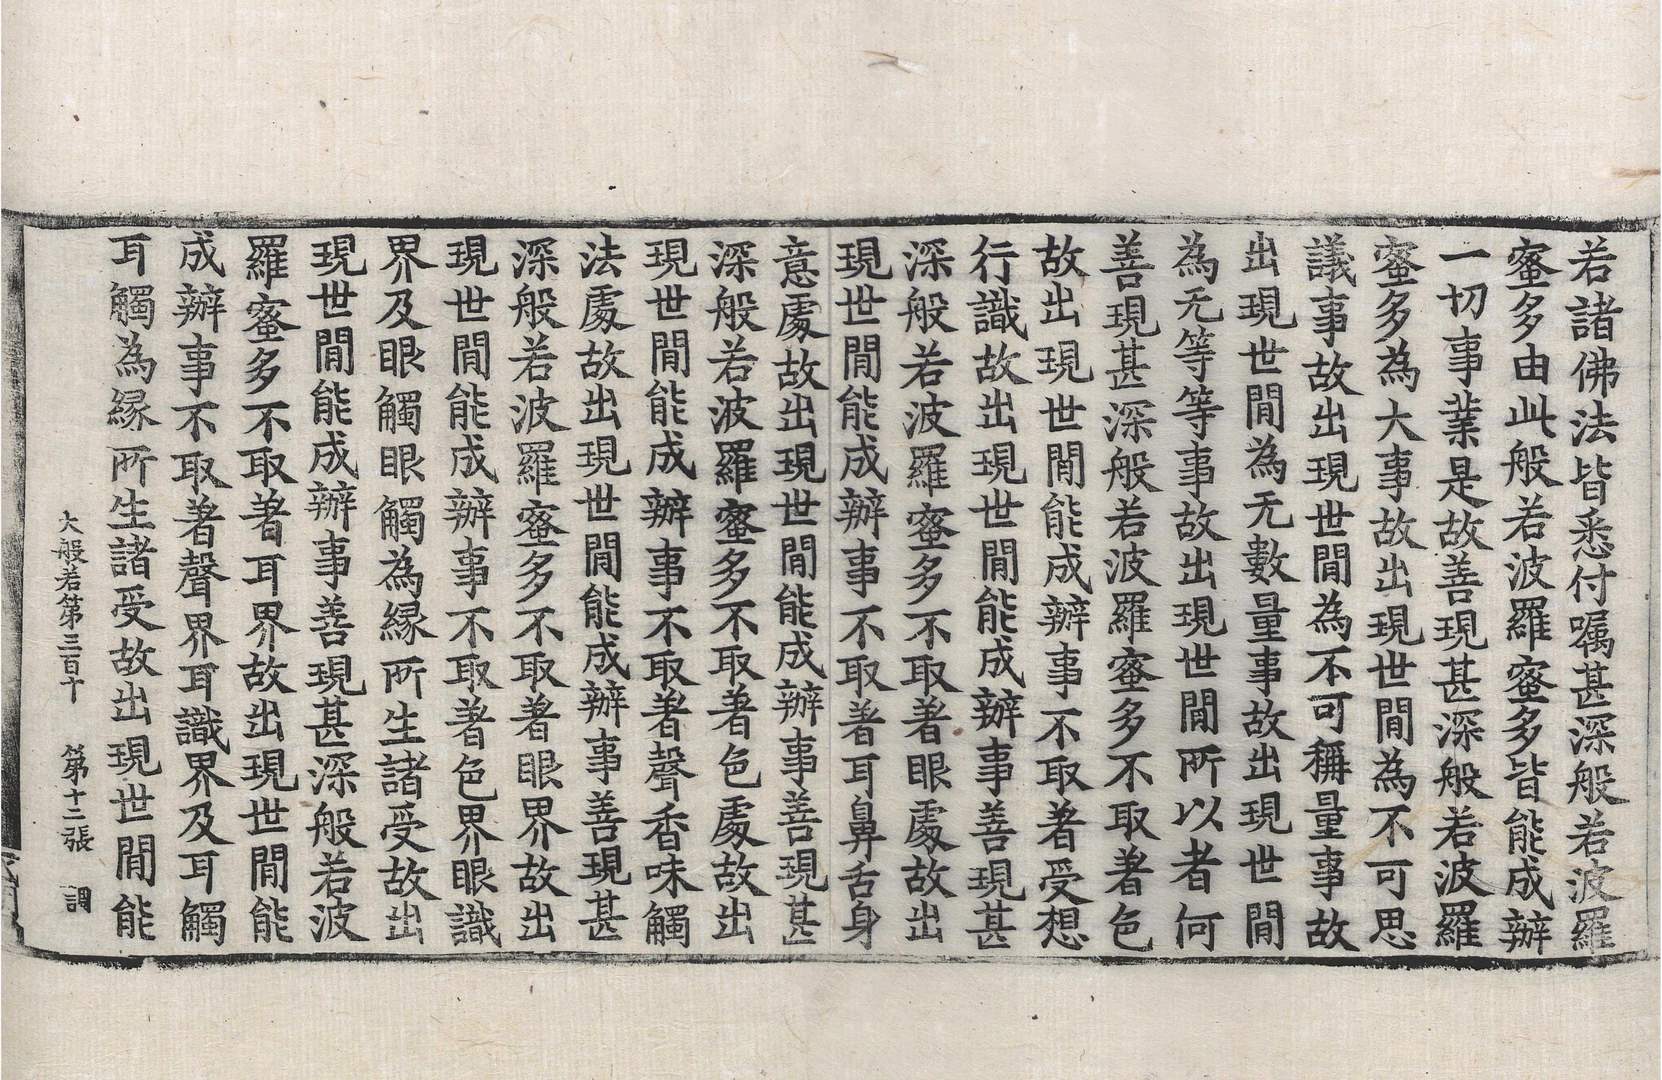 若諸佛法皆悉付囑甚深般若波羅
蜜多由此般若波羅蜜多皆能成辦
一切事業是故善現甚深般若波羅
蜜多為大事故出現世間為不可思
議事故出現世間為不可稱量事故
出現世間為无數量事故出現世間
為无等等事故出現世間所以者何
善現甚深般若波羅蜜多不取著色
故出現世間能成辦事不取著受想
行識故出現世間能成辦事善現甚
深般若波羅蜜多不取著眼處故出
現世間能成辦事不取著耳鼻舌身
意處故出現世間能成辦事善現甚
深般若波羅蜜多不取著色處故出
現世間能成辦事不取著聲香味觸
法處故出現世間能成辦事善現甚
深般若波羅蜜多不取著眼界故出
現世間能成辦事不取著色界眼識
界及眼觸眼觸為緣所生諸受故出
現世間能成辦事善現甚深般若波
羅蜜多不取著耳界故出現世間能
成辦事不取著聲界耳識界及耳觸
耳觸為緣所生諸受故出現世間能
大般若第三百十 第十二張 調